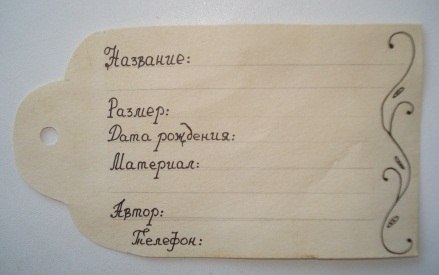 Название:
Размер:
Дата рождения:
Материал:
Автор:
Телефон: